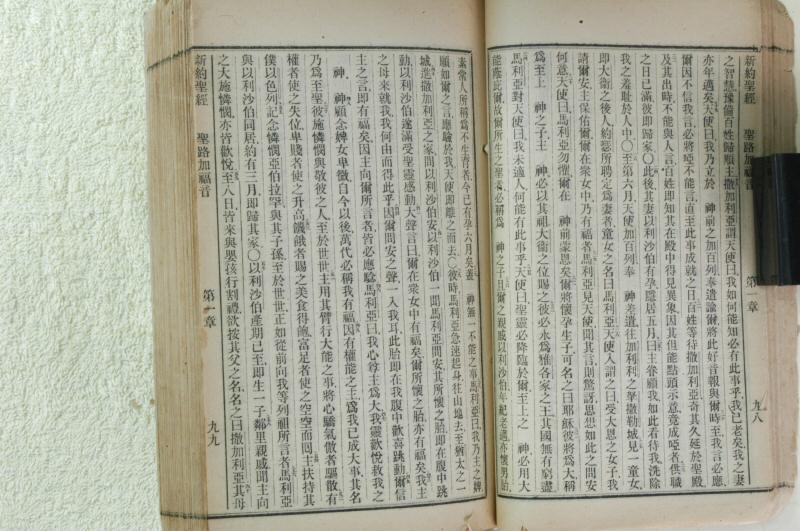 新約聖經　聖路加福音　第一章　九八
之智慧豫備百姓歸順主撒加利亞謂天使曰我如何能知必有此事乎我已老矣我之妻
亦年邁矣天使曰我乃立於　神前之加百列奉遣諭爾將此好音報與爾時至我言必應
爾因不信我言必將啞不能言直至此事成就之日百姓等待撒加利亞奇其久延於聖殿
及其出時不能與人言百姓即知其在殿中得見異象因其但能點頭示意竟成啞者供職
之日已滿彼即歸家〇此後其妻以利沙伯有孕隱居五月曰主眷顧我如此看待我洗除
我之羞恥於人中〇至第六月天使加百列奉　神差遣往加利利之拏撒勒城見一童女
即大衛之後人約瑟所聘定爲妻者童女之名曰馬利亞天使入謂之曰受大恩之女子我
請爾安主保佑爾爾在衆女中乃有福者馬利亞見天使聞其言則驚訝思想如此之問安
何意天使曰馬利亞勿懼爾在　神前蒙恩矣爾將懷孕生子可名之曰耶穌彼將爲大稱
爲至上　神之子主　神必以其祖大衛之位賜之彼必永爲雅各家之王其國無有窮盡
馬利亞對天使曰我未適人何能有此事乎天使曰聖靈必降臨於爾至上之　神必用大
能蔭庇爾故爾所生之聖者必稱爲　神之子且爾之親戚以利沙伯年紀老邁亦懷男胎
素常人所稱爲不生育者今已有孕六月矣蓋　神無一不能之事馬利亞曰我乃主之婢
願如爾之言應驗於我天使即離之而去〇彼時馬利亞急速起身往山地去至猶太之一
城進撒加利亞之家問以利沙伯安以利沙伯一聞馬利亞問安其所懷之胎即在腹中跳
動以利沙伯遂滿受聖靈感動大聲言曰爾在衆女中有福矣爾所懷之胎亦有福矣我主
之母來就我我何由而得此乎因爾問安之聲一入我耳此胎即在我腹中歡喜跳動爾信
主之言即有福矣因主向爾所言者皆必應驗馬利亞曰我心尊主爲大我靈歡悅救我之
神　神顧念婢女卑微自今以後萬代必稱我有福因有權能之主爲我已成大事其名
乃爲至聖彼施憐憫與敬彼之人至於世世主用其臂行大能之事將心驕氣傲者驅散有
權者使之失位卑賤者使之升高饑餓者賜之美食得飽富足者使之空空而回主扶持其
僕以色列記念憐憫亞伯拉罕與其子孫至於世世正如從前向我等列祖所言者馬利亞
與以利沙伯同居約有三月即歸其家〇以利沙伯產期已至即生一子鄰里親戚聞主向
之大施憐憫亦皆歡悅至八日皆來與嬰孩行割禮欲按其父之名名之曰撒加利亞其母
新約聖經　聖路加福音　第一章　九九